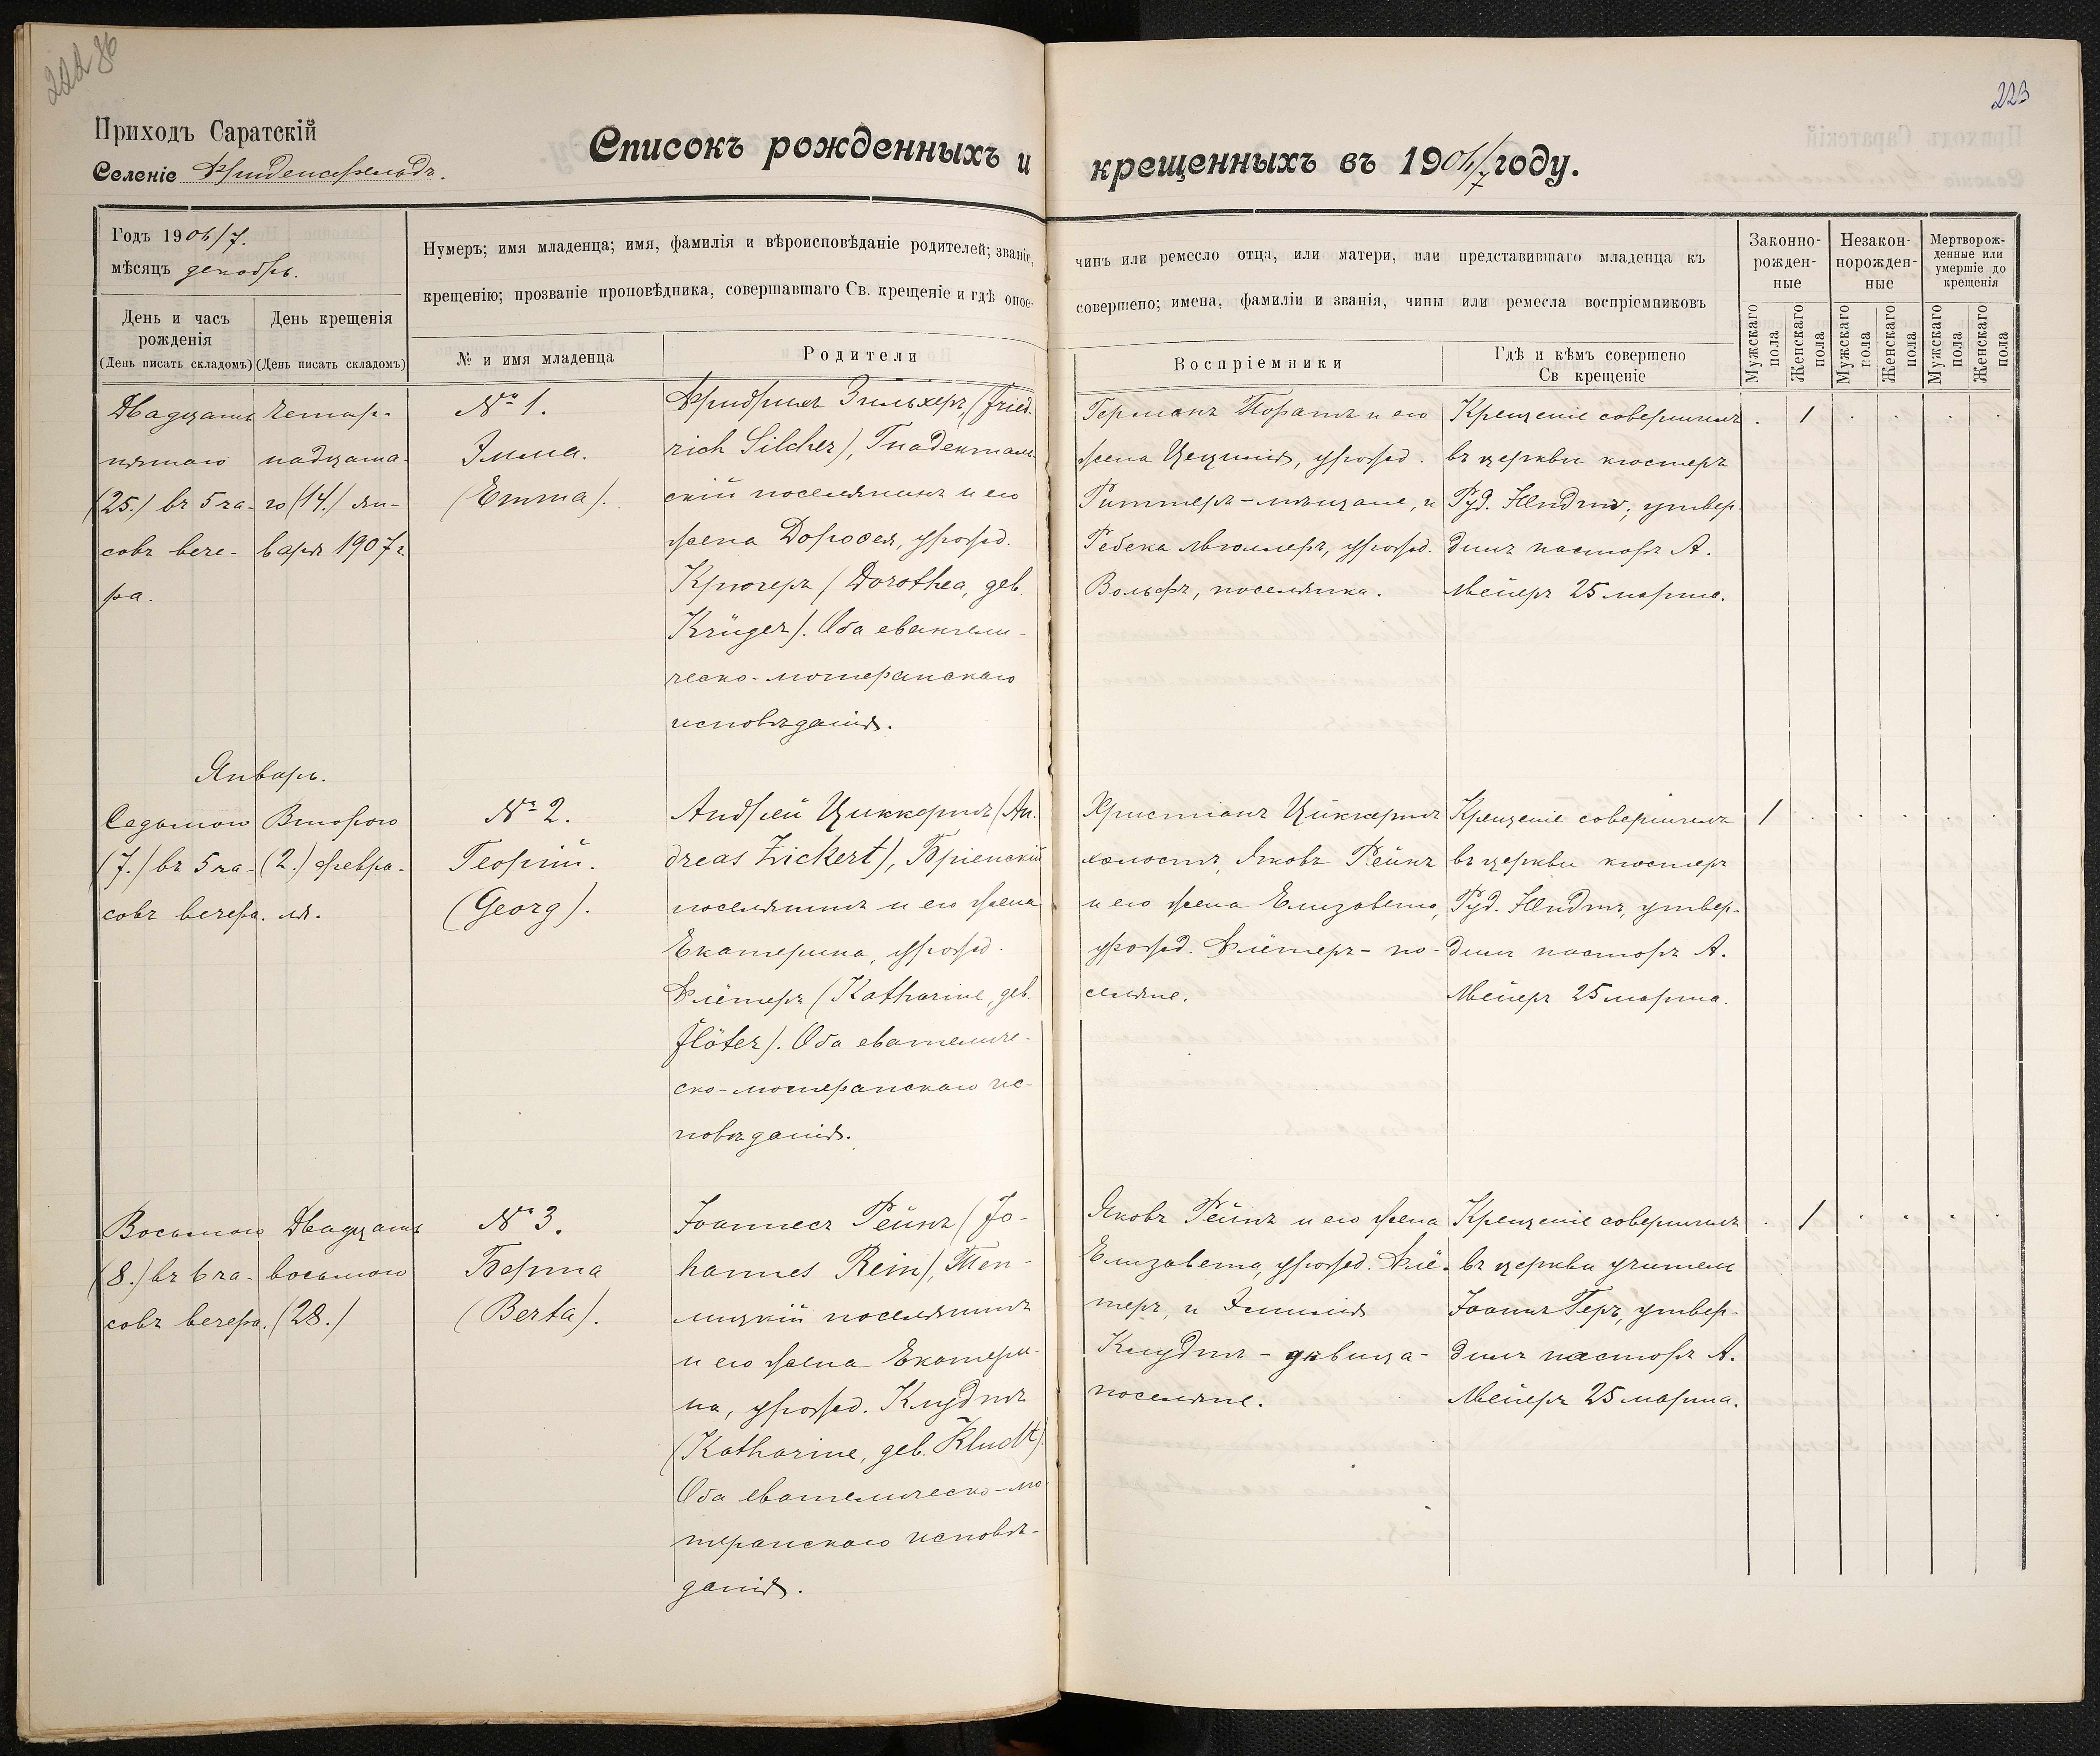 222 86
223
Приходъ Саратскій
Селеніе Фриденсфельдъ.
Списокъ рожденныхъ и крещенныхъ въ 1906/7 году.
Годъ 1906/7.
мѣсяцъ декабрь.
День и часъ рожденія
(День писать складомъ)
День крещенія
(День писать складомъ)
Нумеръ; имя младенца; имя, фамилія и вѣроисповѣданіе родителей; званіе, чинъ или ремесло отца, или матери, или представившаго младенца къ
крещенію; прозваніе проповѣдника, совершавшаго Св. крещеніе и гдѣ оное совершено; имена, фамиліи и званія, чины или ремесла воспріемниковъ
№ и имя младенца
Родители
Воспріемники
Гдѣ и кѣмъ совершено
Св крещеніе
Законно-
рожден-
ные
Незакон-
норожден-
ные
Мертворож-
денные или
умершіе до
крещенія
Мужскаго пола
Женскаго пола
Мужскаго пола
Женскаго пола
Мужскаго пола
Женскаго пола
Двадцать
пятаго
(25.) въ 5 ча-
совъ вече-
ра.
четыр-
надцата-
го (14.) ян-
варя 1907 г.
№ 1.
Эмма.
(Emma).
Фридрихъ Зильхеръ, (Fried-
rich Silcher), Гнадентал-
скій поселянинъ и его
жена Доротея, урожд.
Крюгеръ (Dorothea, geb.
Krüger). Оба евангели-
ческо-лютеранскаго
исповѣданія.
Германъ Поратъ и его
жена Цецилія, урожд.
Риттеръ - мѣщане, и
Ребека Мюллеръ, урожд.
Вольфъ, поселянка.
Крещеніе совершилъ
въ церкви кюстеръ
Руд. Нендтъ; утвер-
дилъ пасторъ А.
Мейеръ 25 марта.
. 1 . . . .
Январь.
Седьмого
(7.) въ 5 ча-
совъ вечера.
Второго
(2.) февра-
ля.
№ 2.
Георгій.
(Georg).
Андрей Циккертъ (An-
dreas Zickert), Бріенскій
поселянинъ и его жена
Екатерина, урожд.
Флётеръ (Katharine, geb.
Flöter). Оба евангеличе-
ско-лютеранскаго ис-
повѣданія.
Христіанъ Циккертъ
холостъ, Яковъ Рейнъ
и его жена Елизавета,
урожд. Флётеръ - по-
селяне.
Крещеніе совершилъ
въ церкви кюстеръ
Руд. Нендтъ, утвер-
дилъ пасторъ А.
Мейеръ 25 марта.
1 . . . . .
Восьмого
(8.) въ 6 ча-
совъ вечера.
Двадцать
восьмого
(28.)
№ 3.
Берта
(Berta).
Іоаннесъ Рейнъ (Jo-
hannes Rein), Теп-
лицкій поселянинъ
и его жена Екатери-
на, урожд. Клудтъ
(Katharine, geb. Kludt).
Оба евангелическо-лю-
теранскаго исповѣ-
данія.
Яковъ Рейнъ и его жена
Елизавета, урожд. Флё-
теръ, и Эмилія
Клудтъ - дѣвица -
поселяне.
Крещеніе совершилъ
въ церкви учитель
Іоаннъ Геръ, утвер-
дилъ пасторъ А.
Мейеръ 25 марта.
. 1 . . . .